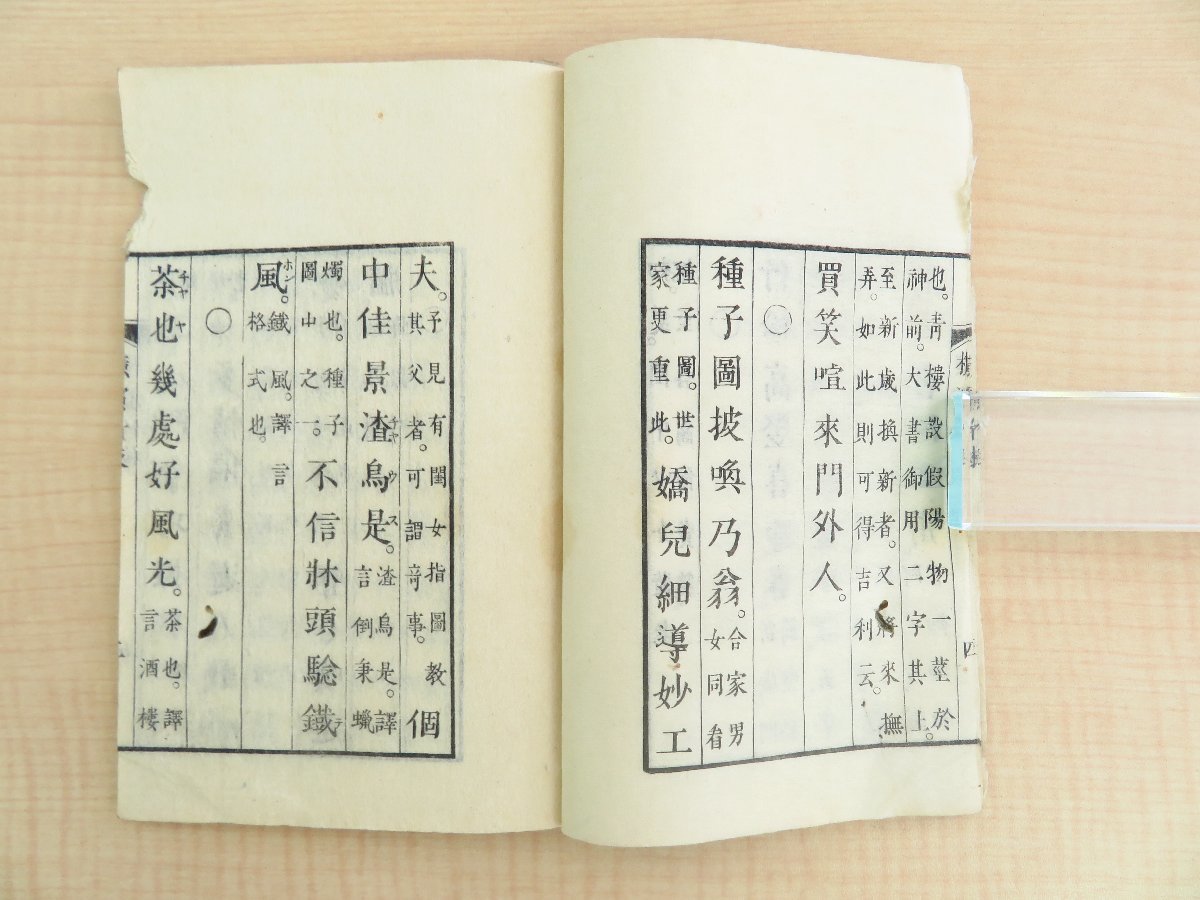 也。靑樓設假陽物一莖於
神前。大書御用二字其上。
至新歲換新者。又將來撫
弄。如此則可得吉利云。
買笑喧來門外人。
〇
種子圖披喚乃翁。合家男女同看
種子圖。世家更重此。嬌兒細導妙工
夫。予見有閨女指圖教其父者。可謂竒事。個
中佳景渣烏是。渣烏是。譯言倒秉蠟
チヤウス
燭也。種子圖中之一。不信牀頭騐鐵
テ
風。鐵風。譯言格式也。
ホン
〇
茶也幾處好風光。茶也。譯言酒樓
チヤヤ